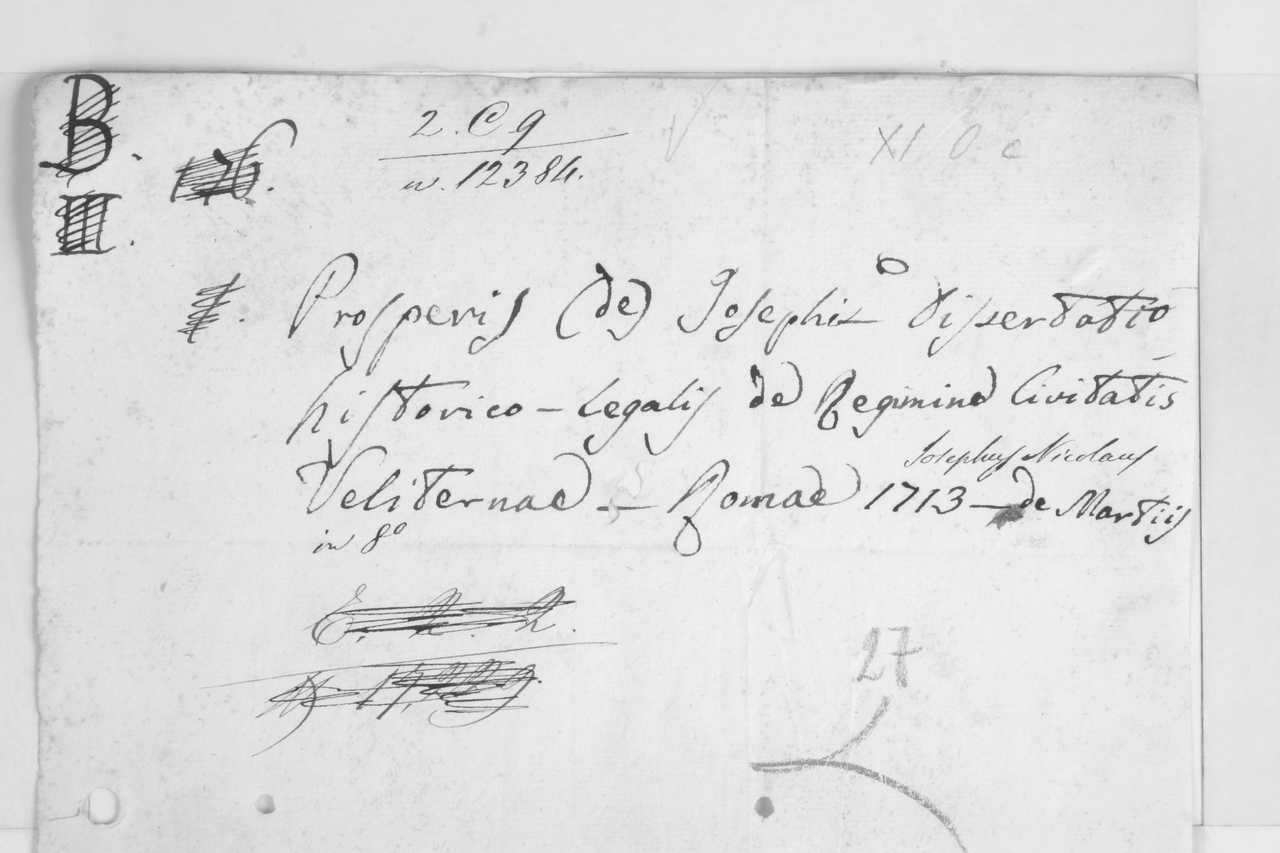 B.
2. C 9
XI. O. c
126.
n. 12384.
III.
Prosperis (de) Josephi Dissertatio
historico-Legalis de Regimine Civitatis
Josephus Nicolaus
Veliternae — Romae 1713 — de Martiis
in 8º
27